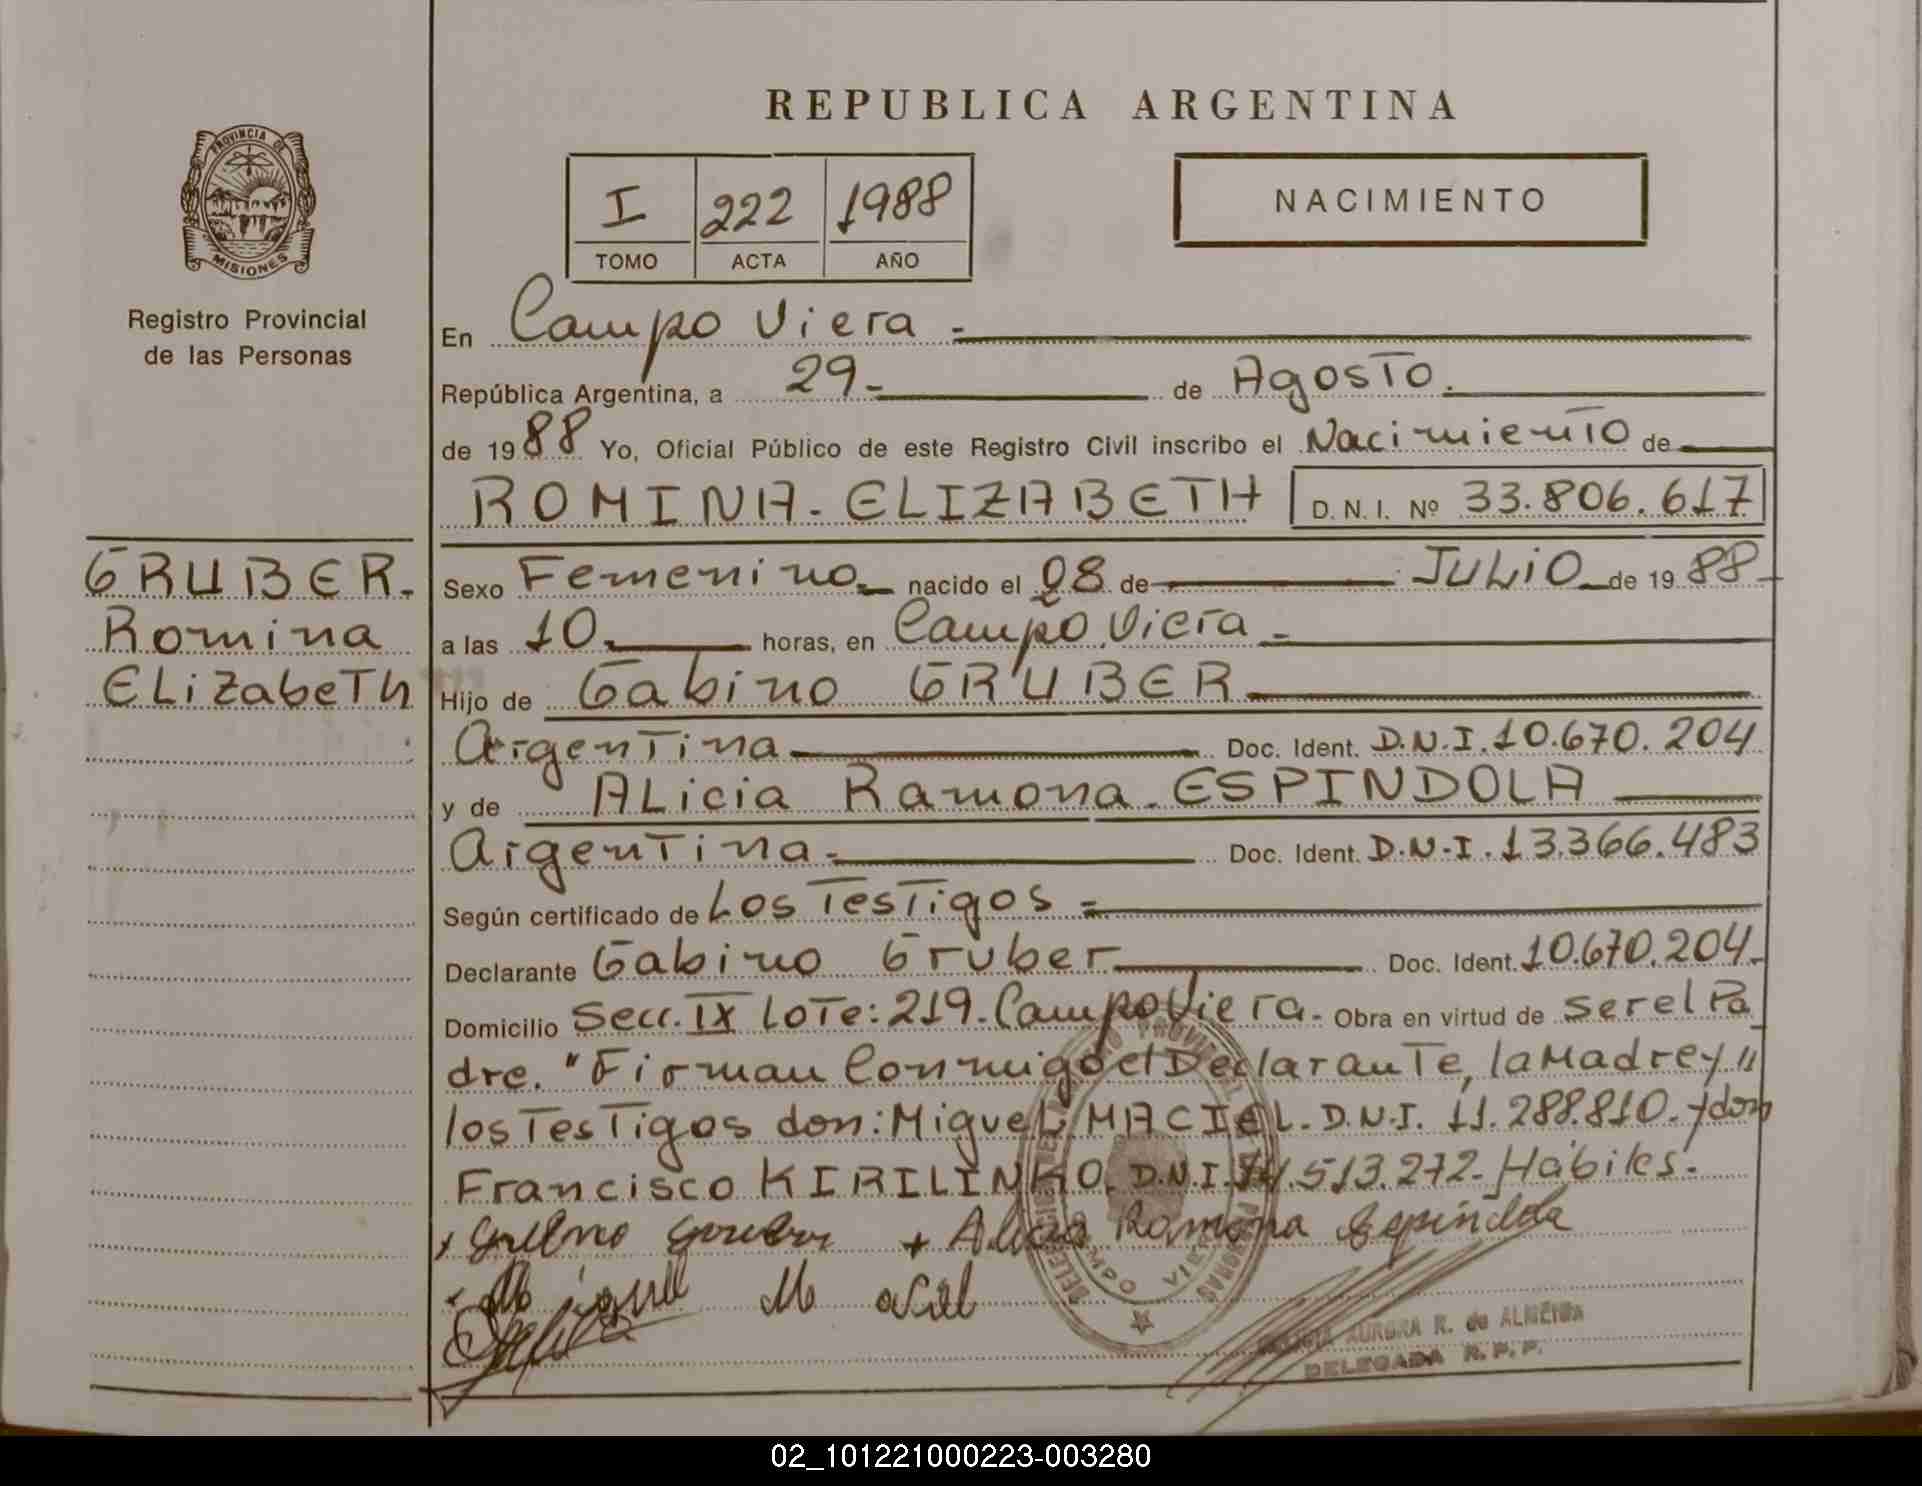 REPUBLICA ARGENTINA
PROVINCIA DE
MISIONES
Registro Provincial
de las Personas
I 222 1988
TOMO ACTA AÑO
NACIMIENTO
En Campo Viera.-
República Argentina, a 29- de Agosto.
de 1988 Yo, Oficial Público de este Registro Civil inscribo el Nacimiento de
ROMINA-ELIZABETH D. N. I. Nº 33.806.617
GRUBER.
Romina
ELizabeTh
Sexo Femenino nacido el 28 de JULiO de 1988
a las 10. horas, en Campo Viera
Hijo de Gabino GRUBER
Argentina Doc. Ident. D.N.I.10.670.204
y de ALicia Ramona ESPINDOLA
Argentina- Doc. Ident. D.N.I.13.366.483
Según certificado de Los Testigos =
Declarante Gabino Gruber Doc. Ident. 10.670.204-
Domicilio Secc. IX Lote: 219. Campo Viera. Obra en virtud de ser el Pa
dre. "Firman Conmigo el Declarante, la Madre y "
los Testigos don: MigueL MACIEL. D.N.I. 11.288.810. y don
Francisco KIRILINKO. D.N.I. 14.513.272- Hábiles.-
Alicia Ramona Espindola
Miguel M
AURORA R. de ALMEIDA
DELEGADA R.P.P.
02_101221000223-003280